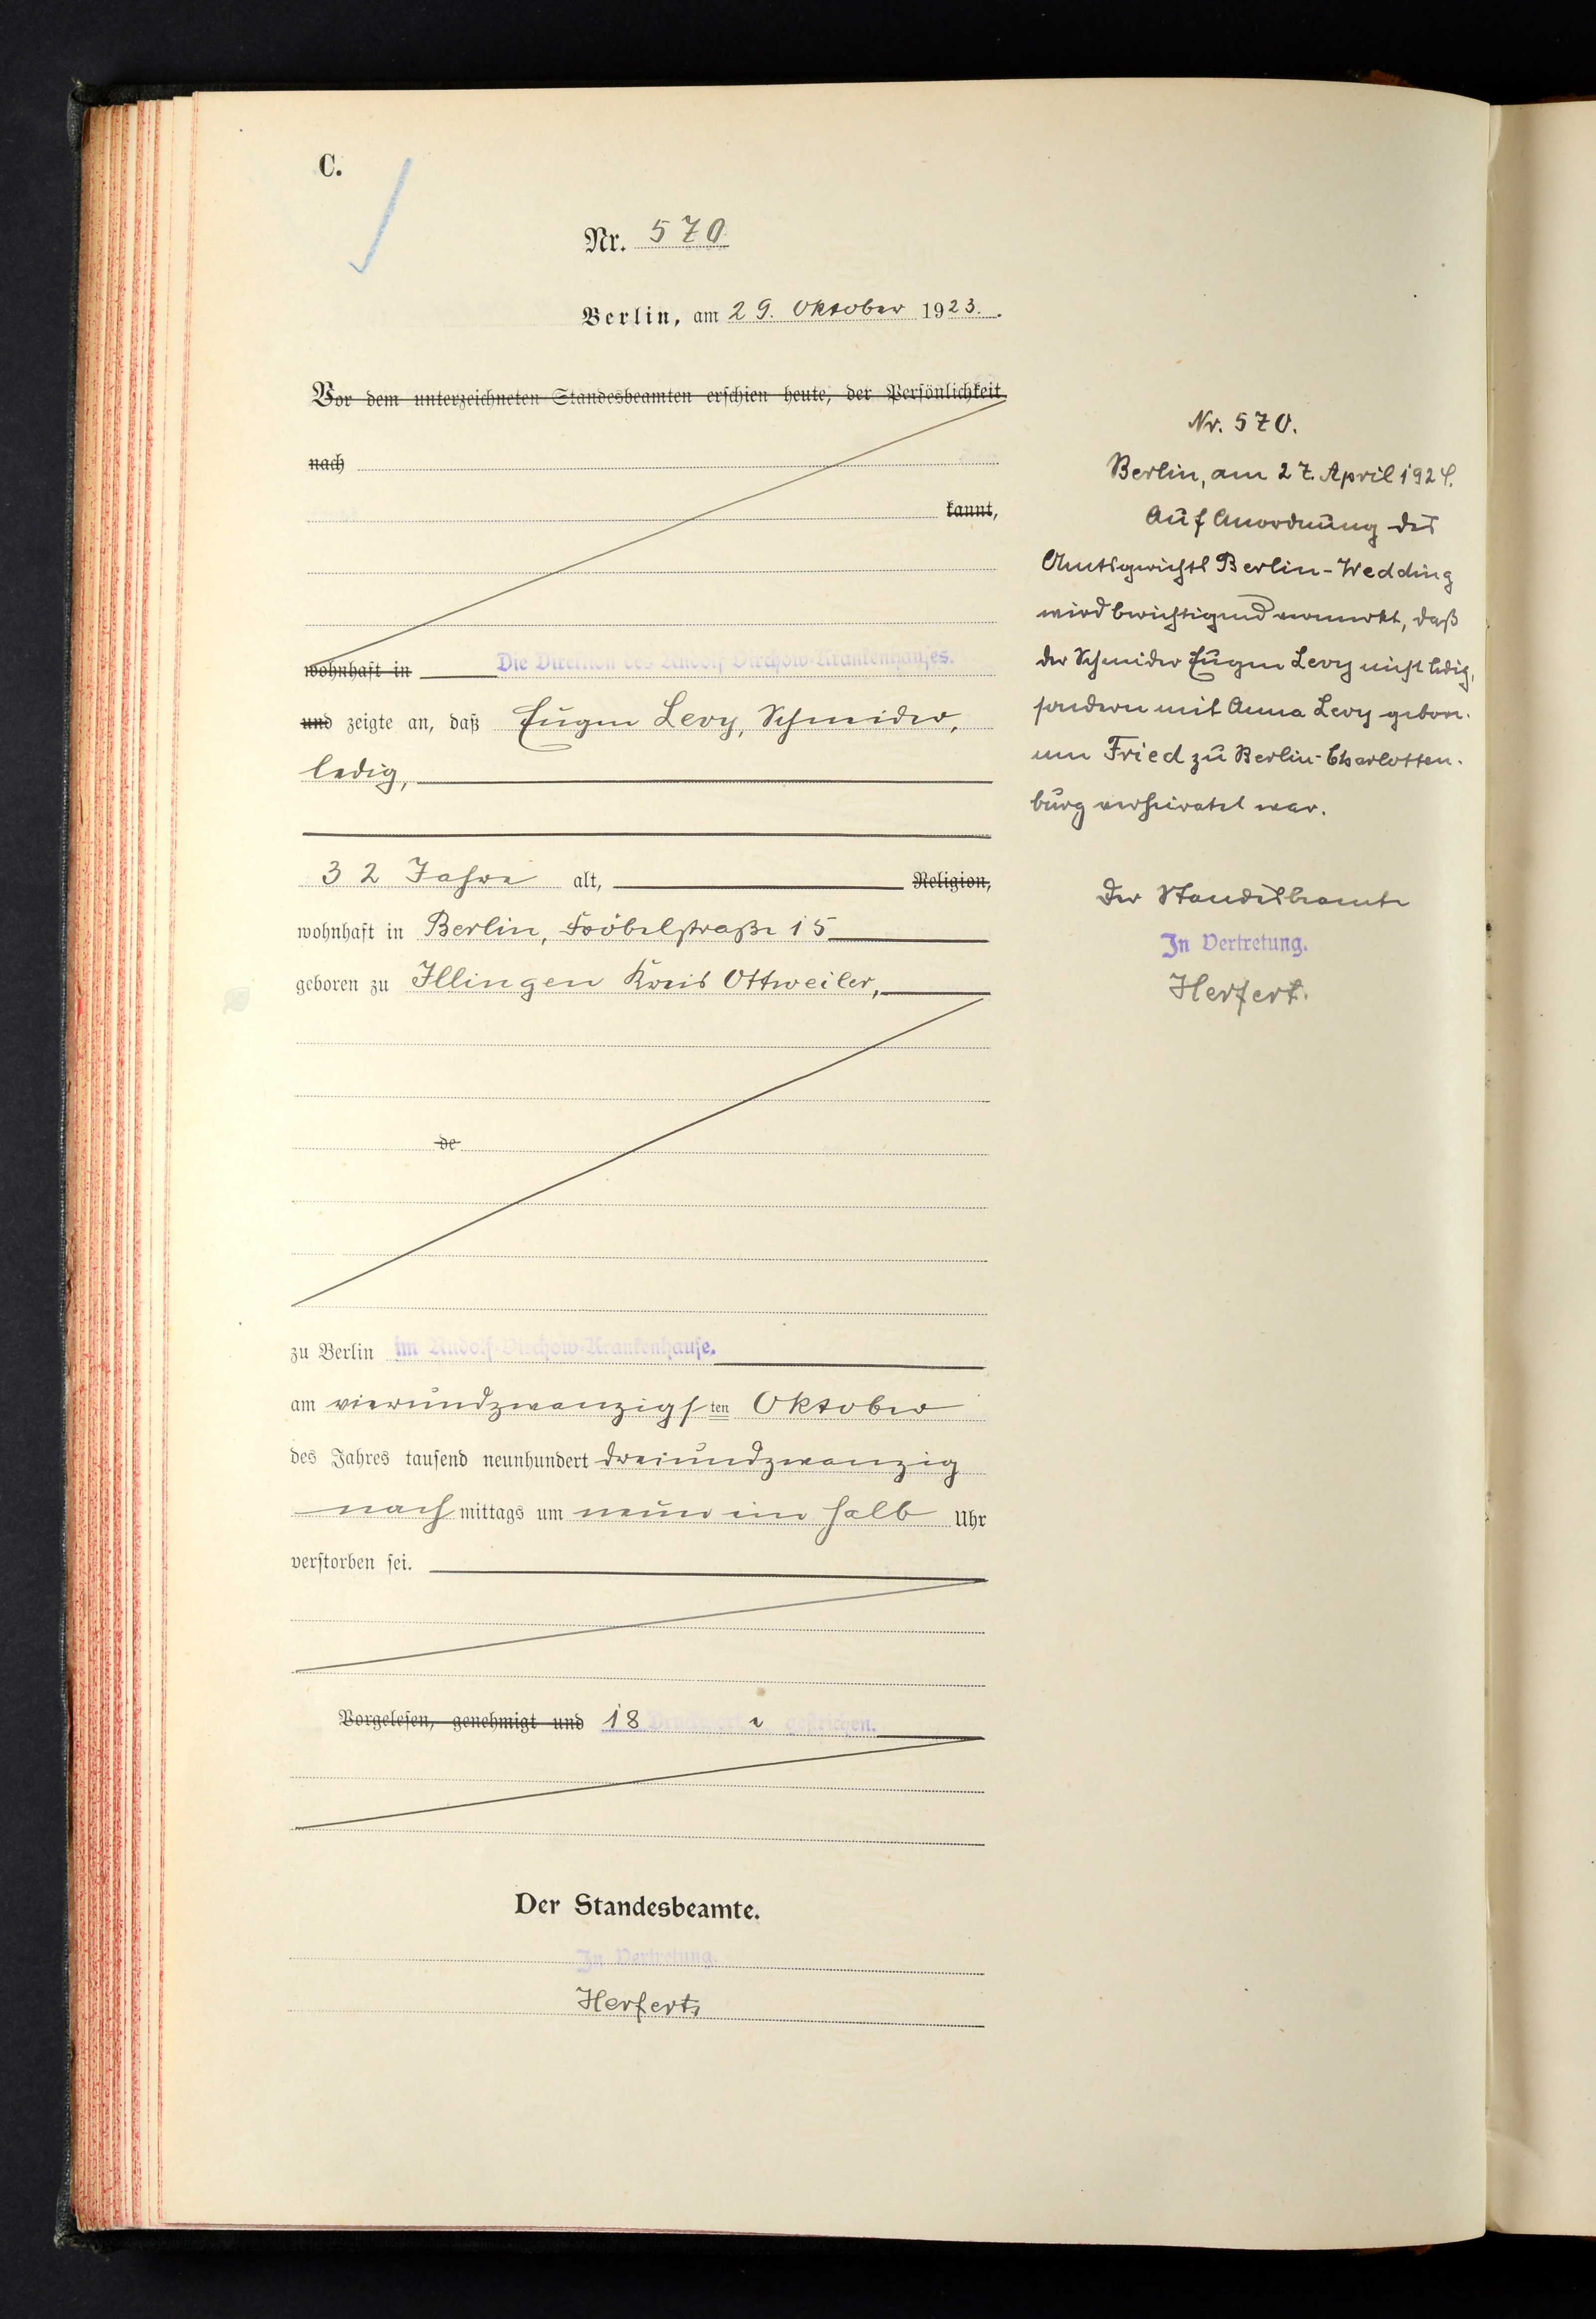 C.
Nr. 570
Berlin, am 29. Oktober 1923.
Vor dem unterzeichneten Standesbeamten erschien heute, der Persönlichkeit
nach
kannt,
wohnhaft in Die Direktion des Rudolf Virchow-Krankenhauses.
und zeigte an, daß Eugen Levy, Schneider,
ledig,
32 Jahre alt, Religion,
wohnhaft in Berlin, Fröbelstraße 15
geboren zu Illingen Kreis Ottweiler,
de
zu Berlin im Rudolf-Virchow-Krankenhause.
am vierundzwanzigsten Oktober
des Jahres tausend neunhundert dreiundzwanzig
nachmittags um neun ein halb Uhr
verstorben sei.
Vorgelesen, genehmigt und 18 Druckworte gestrichen.
Der Standesbeamte.
In Vertretung.
Herfert
Nr. 570.
Berlin, am 27. April 1924.
Auf Anordnung des
Amtsgerichts Berlin-Wedding
wird berichtigend vermerkt, daß
der Schneider Eugen Levy nicht ledig,
sondern mit Anna Levy gebore-
nen Fried zu Berlin-Charlotten-
burg verheiratet war.
Der Standesbeamte
In Vertretung.
Herfert.